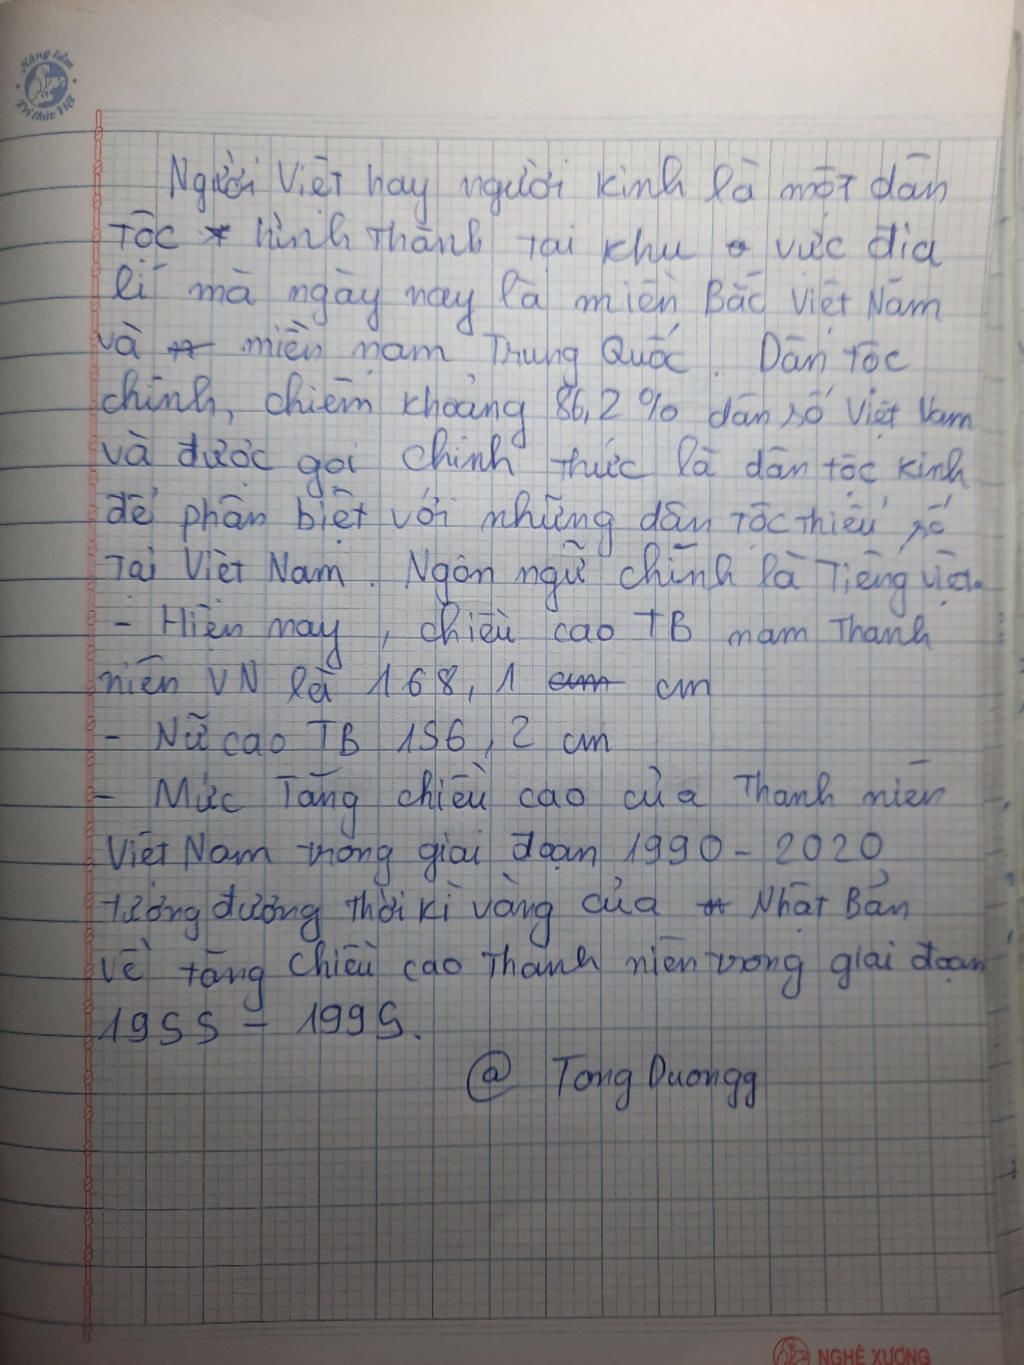 Nâng tầm
Trí thức Việt
Người Việt hay người kinh là một dân
tộc hình thành tại khu vực địa
lí mà ngày nay là miền Bắc Việt Nam
và miền nam Trung Quốc. Dân tộc
chính, chiếm khoảng 86,2% dân số Việt Nam
và được gọi chính thức là dân tộc kinh
để phân biệt với những dân tộc thiểu số
tại Việt Nam. Ngôn ngữ chính là Tiếng việt.
- Hiện nay, chiều cao TB nam thanh
niên VN là 168,1 cm
- Nữ cao TB 156,2 cm
- Mức tăng chiều cao của thanh niên
Việt Nam trong giai đoạn 1990 - 2020
tương đương thời kì vàng của Nhật Bản
về tăng chiều cao thanh niên trong giai đoạn
1955 - 1995.
@ Tong Duongg
NGHÊ XƯƠNG